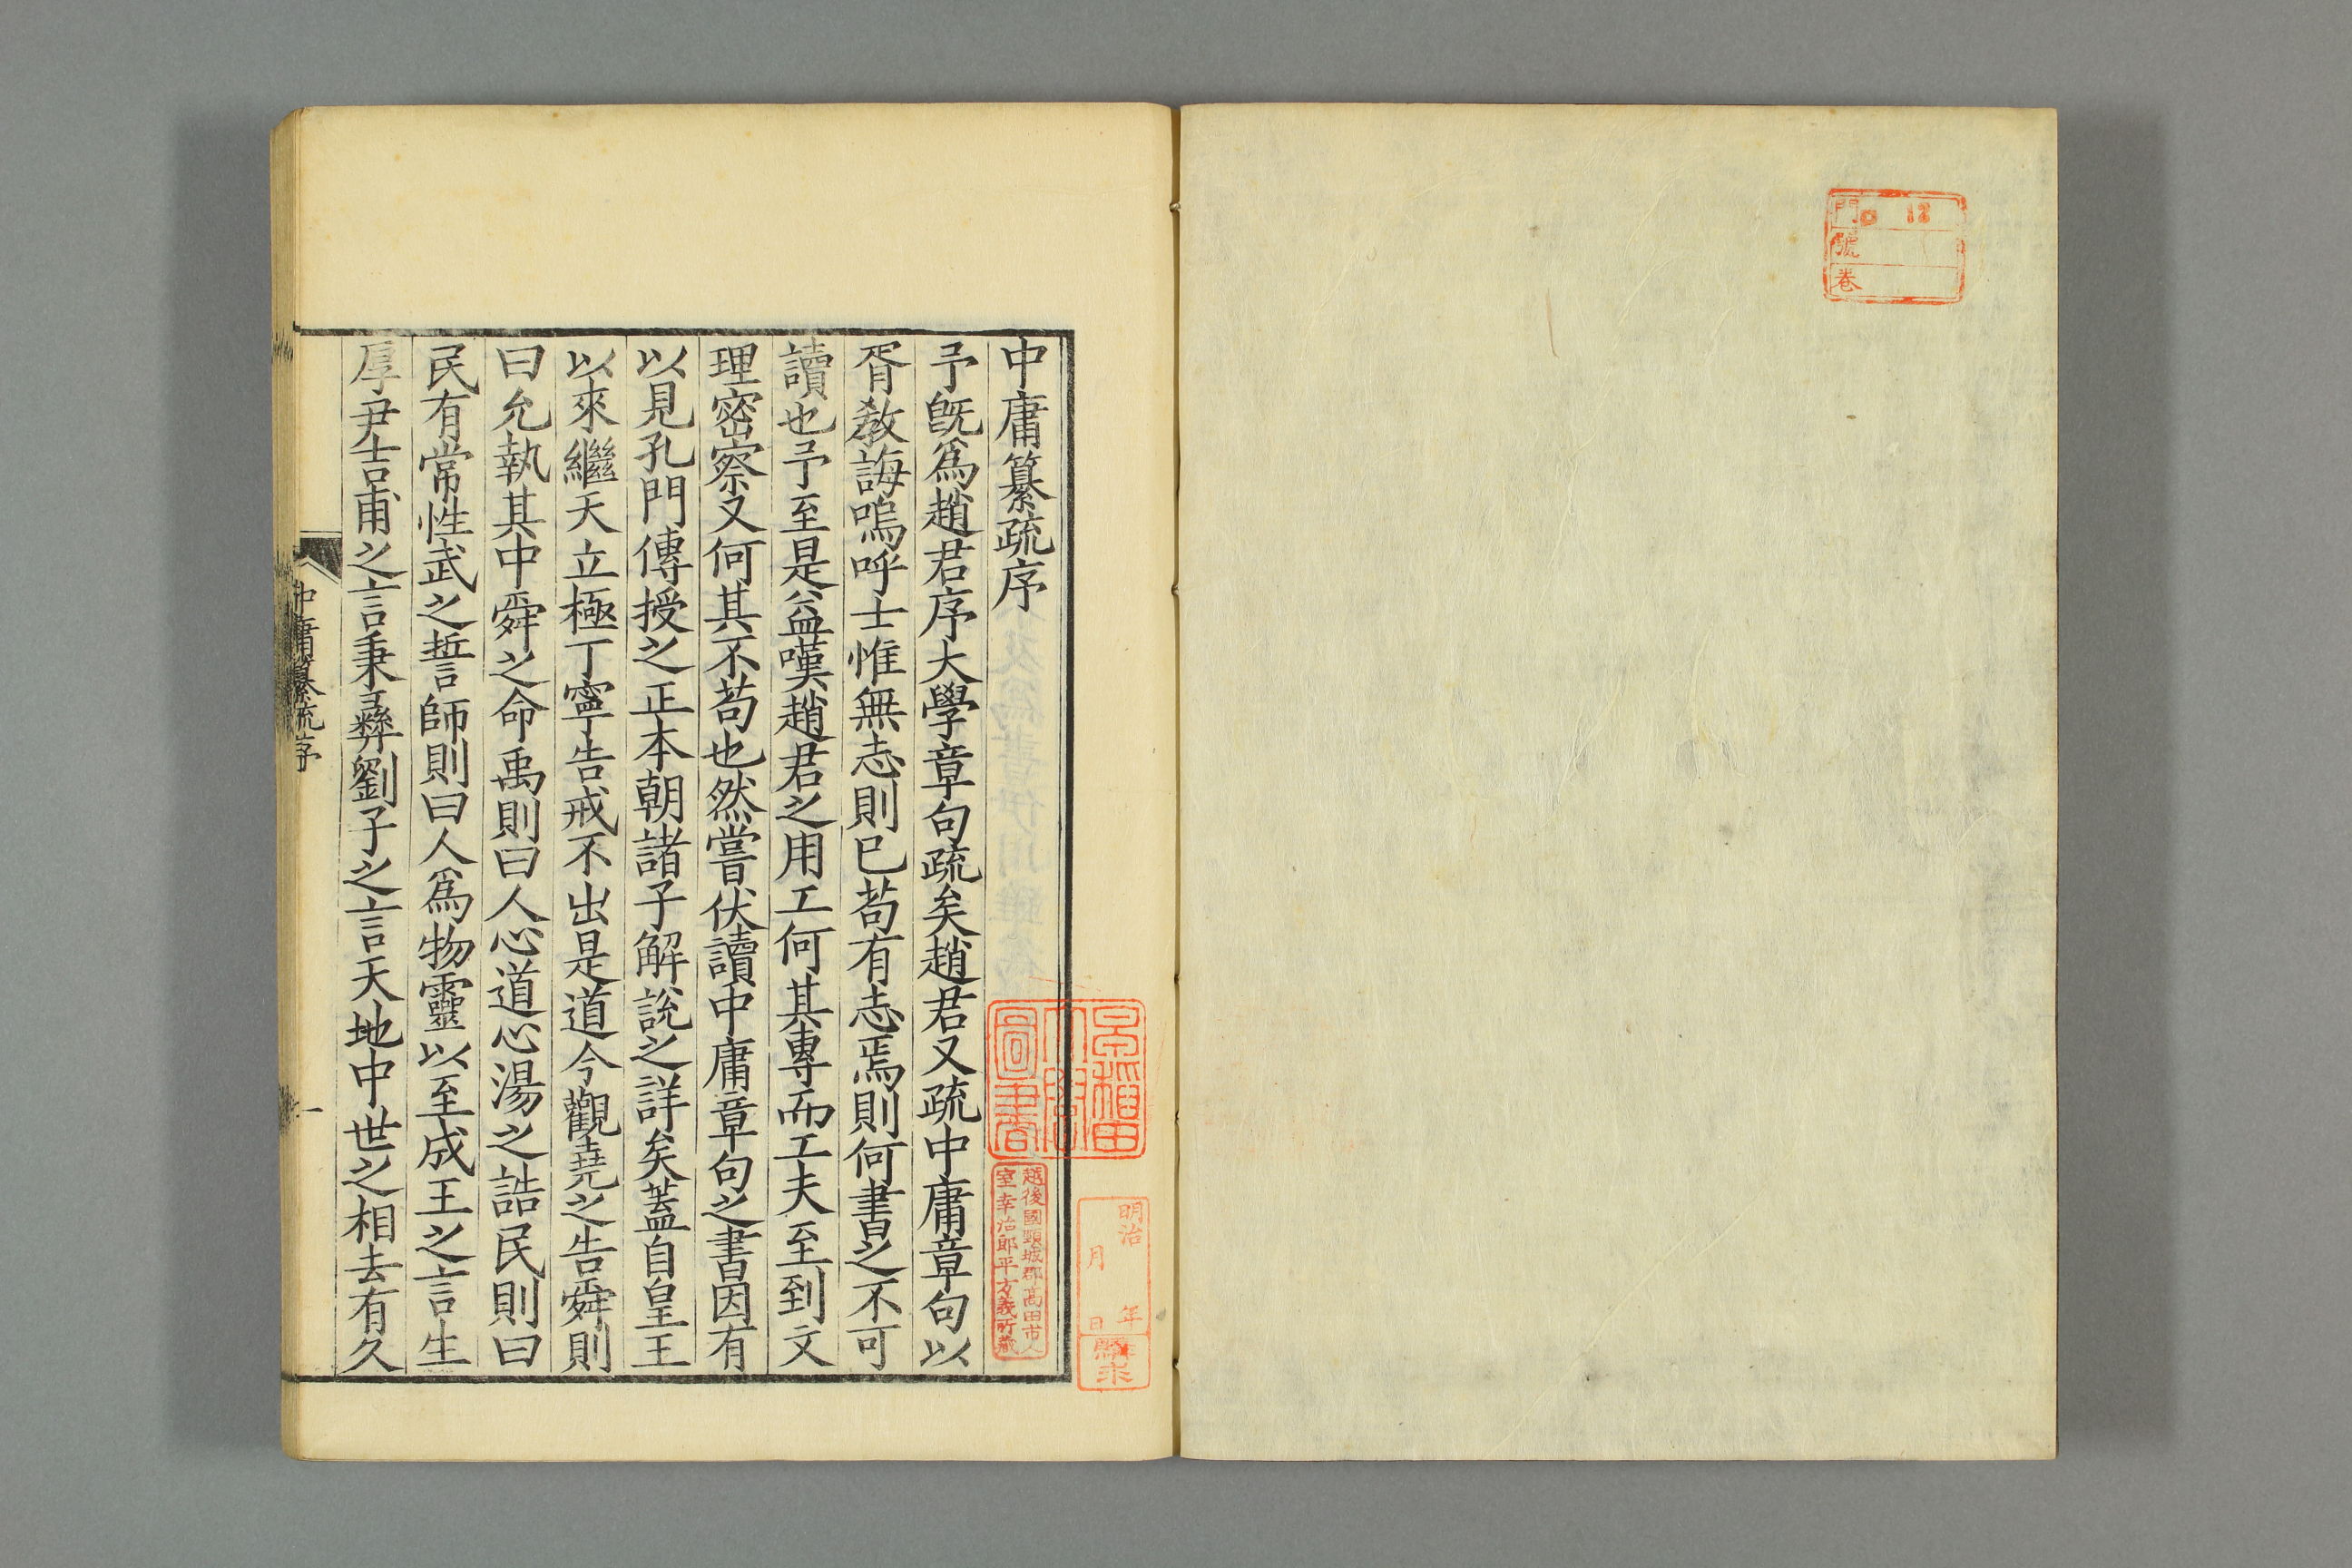 門 12
號
卷
中庸纂疏序
予旣爲趙君序大學章句疏矣趙君又疏中庸章句以
胥敎誨嗚呼士惟無志則已苟有志焉則何書之不可
讀也予至是益嘆趙君之用工何其專而工夫至到文
理密察又何其不苟也然嘗伏讀中庸章句之書因有
以見孔門傳授之正本朝諸子解說之詳矣蓋自皇王
以來繼天立極丁寧告戒不出是道今觀堯之告舜則
曰允執其中舜之命禹則曰人心道心湯之誥民則曰
民有常性武之誓師則曰人爲物靈以至成王之言生
厚尹吉甫之言秉彝劉子之言天地中世之相去有久
中庸纂疏序
一
早稲田
大學
圖書
越後國頸城郡高田市人
室孝治郎平方義所藏
明治 年
月 日